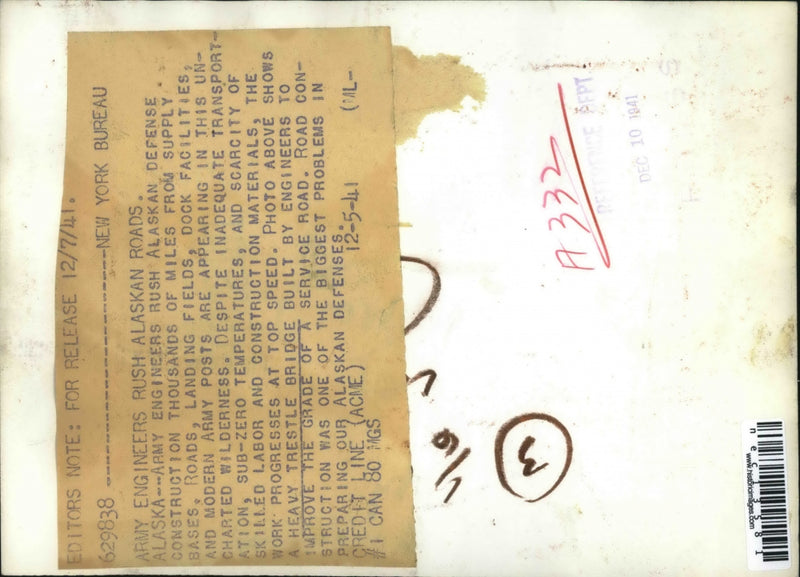 EDITORS NOTE: FOR RELEASE 12/7/41.
629838 -------------------NEW YORK BUREAU
ARMY ENGINEERS RUSH ALASKAN ROADS.
ALASKA--ARMY ENGINEERS RUSH ALASKAN DEFENSE
CONSTRUCTION THOUSANDS OF MILES FROM SUPPLY
BASES. ROADS, LANDING FIELDS, DOCK FACILITIES,
AND MODERN ARMY POSTS ARE APPEARING IN THIS UN-
CHARTED WILDERNESS. DESPITE INADEQUATE TRANSPORT-
ATION, SUB-ZERO TEMPERATURES, AND SCARCITY OF
SKILLED LABOR AND CONSTRUCTION MATERIALS, THE
WORK PROGRESSES AT TOP SPEED. PHOTO ABOVE SHOWS
A HEAVY TRESTLE BRIDGE BUILT BY ENGINEERS TO
IMPROVE THE GRADE OF A SERVICE ROAD. ROAD CON-
STRUCTION WAS ONE OF THE BIGGEST PROBLEMS IN
PREPARING OUR ALASKAN DEFENSES.
CREDIT LINE (ACME) 12-5-41 (ML-
#1 CAN 80 MGS
A332
REFERENCE DEPT
DEC 10 1941
3
www.historicimages.com
nec13581